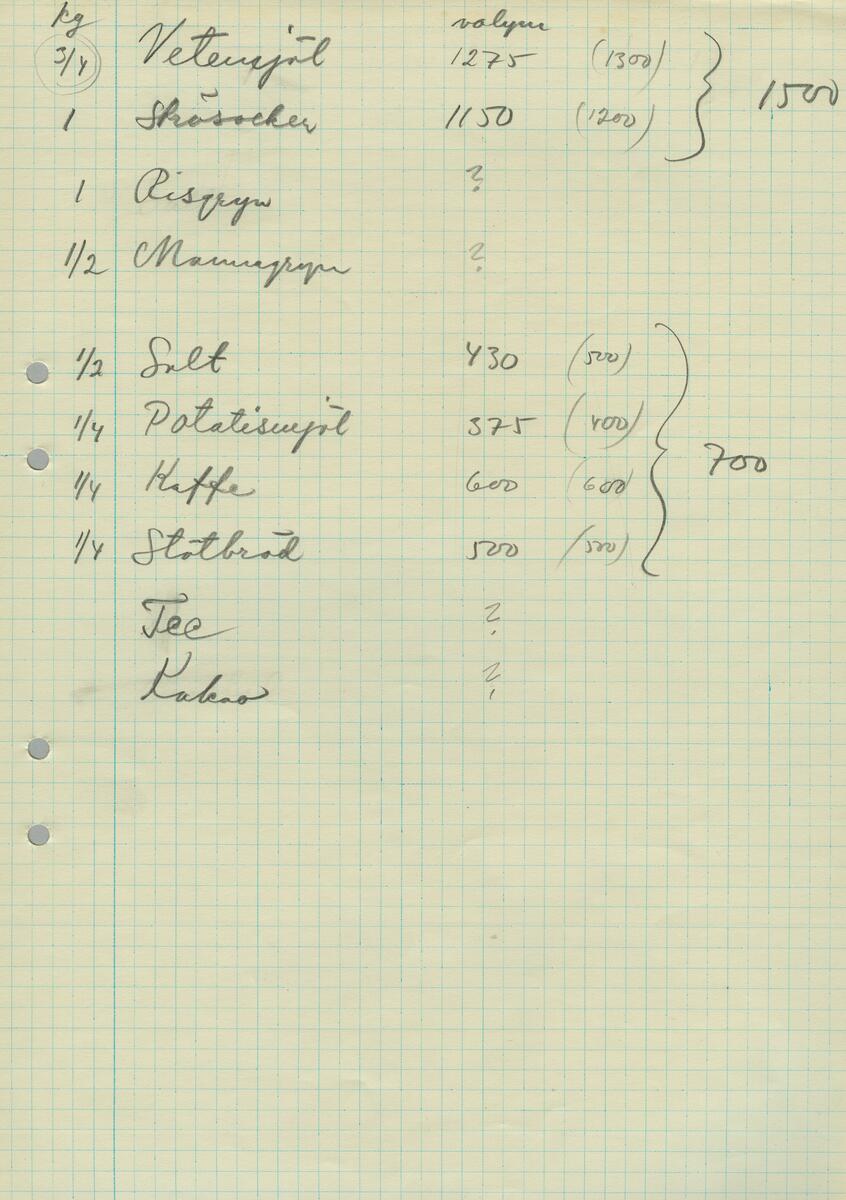 kg volym
3/4 Vetemjöl 1275 (1300)
1500
1 Strösocker 1150 (1200)
1 Risgryn ?
1/2 Mannagryn ?
1/2 Salt 430 (500)
1/4 Potatismjöl 375 (400)
700
1/4 Kaffe 600 (600)
1/4 Stötbröd 500 (500)
Tee ?
Kakao ?